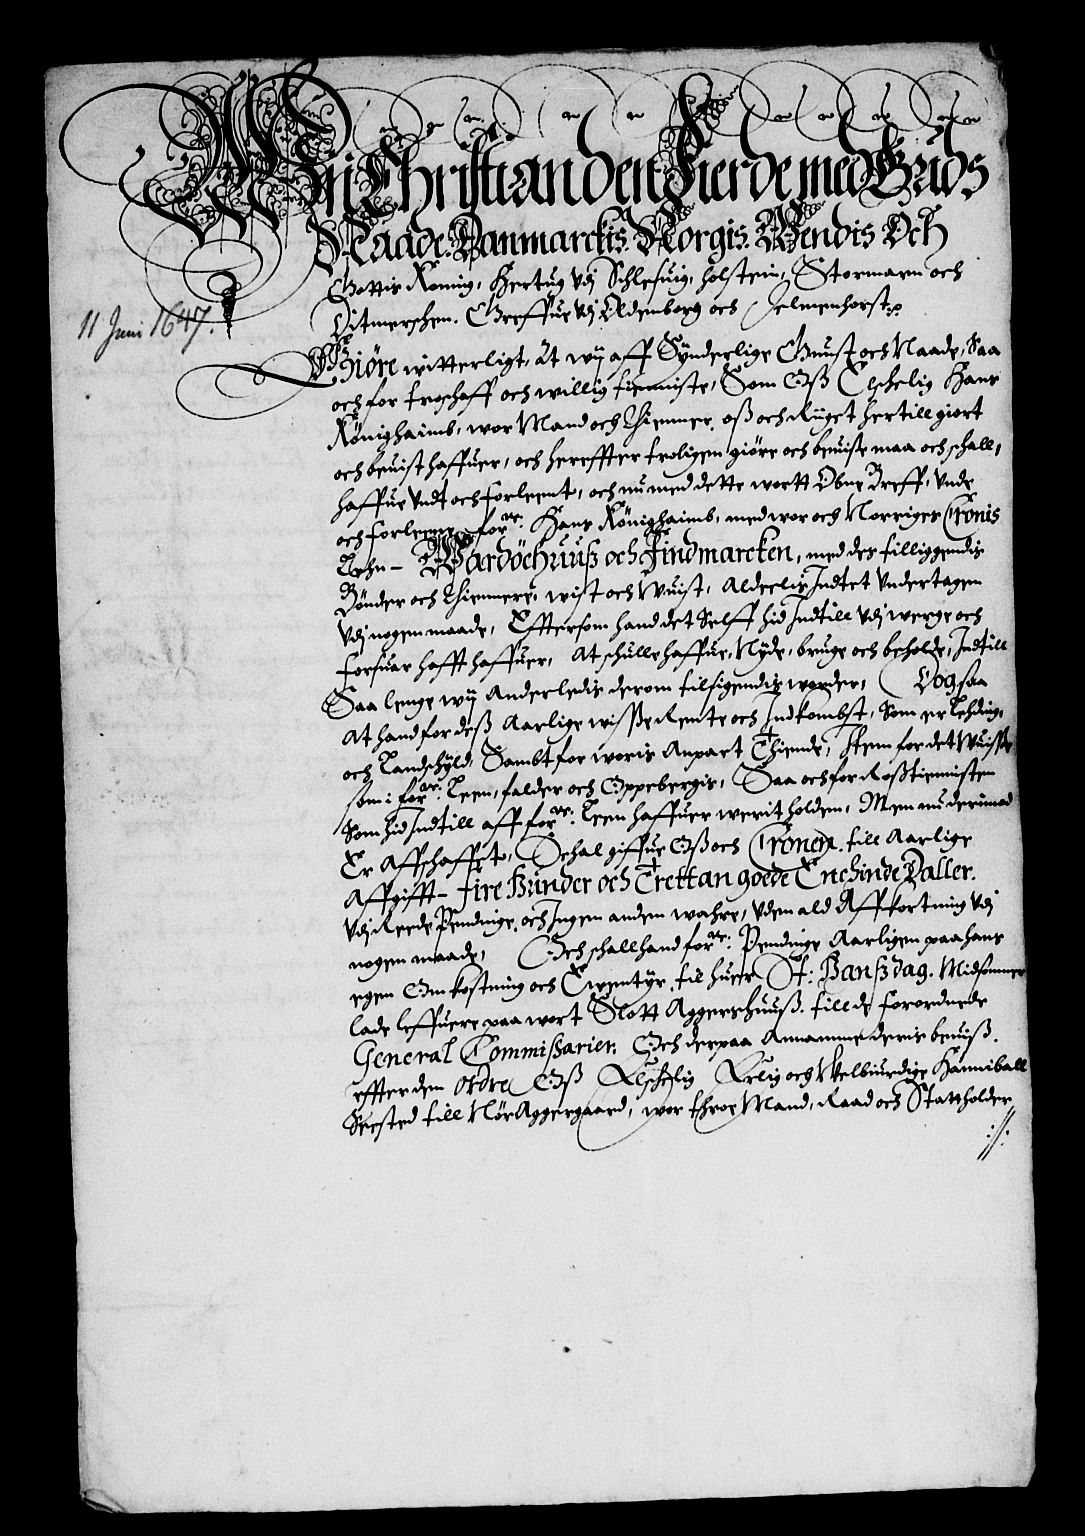 Wii Christian den Fierde med Guds
Naade. Danmarckis. Norgis. Wendis Och
Gottis Koning, Hertug Udj Schleswig, Holstein, Stormarn och
Ditmerschen. Greffue Udj Oldenborg och Delmenhorst
11 Juni 1647.
Giöre witterligt, At wij aff Synderlige Gunst och Naade, Saa
och for troschaff och willig tienniste, Som Oß Elschelig Hans
Könighaimb, wor Mand och Thienner, oß och Riiget hertill giort
och beuist haffuer, och hereffter troligen giöre och beuise maa och schall,
haffue Undt och forleent, och nu med dette wortt Obne Breff, Unde
och forleene forne: Hans Könighaimb, med wor och Norriges Cronis
Lehn - Wardöehuuß och Findmarcken, med des tilliggendis
Bönder och Thiennere, wist och Wuist, aldeelis Indtet Undertagen
Udj nogen maade, Efftersom hand det Selff hid Indtill Udj werge och
forsuar hafft haffuer, At schulle haffue, Nyde, bruge och beholde, Indtill
Saa lenge wij Anderledis derom tilsigendis worder, Dog saa
At hand for deß Aarlige wisse Rente och Indkombst, Som er Lehding,
och Landschyld, Sambt for woris Anpart Thiende, Item for det Wuisse
som i forne: Leen, falder och Oppebergis, Saa och for Roßtiennisten
Som hid Indtill aff forne: Leen haffuer werit holden, Men nu derimod
Er Affschaffet, Schal giffue Oß och Cronen. till Aarlige
Affgifft - fire Hunder och Trettan goede Enchinde Daller.
Udj Reede Pendinge, och Ingen anden wahre, Uden ald Affkortning Udj
nogen maade, Och schall hand forne: Pendinge Aarligen paa hans
egen Omkostning och Ewentyr, til huer St: Hanßdag. Midsommer
lade leffuere paa wort Slott Aggerschuuß. till de forordnede
General Commißarier. Och derpaa Annamme deris beuiß.
effter den Ordre Oß Elschelig Erlig och Welbiurdige Hanniball
Seested till NörAggergaard, wor throe Mand, Raad och Stattholder
:/: